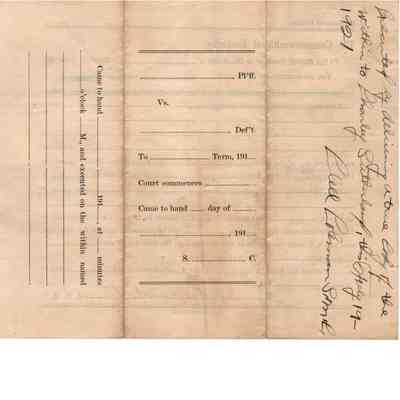 Came to hand 191 , at minutes
o'clock M., and executed on the within named
Pl'ff.
Vs.
Def't.
To Term, 191
Court commences
Came to hand day of
, 191
S. C.
Executed by delivering a true copy of the
within to Stanley
July 19-
1921